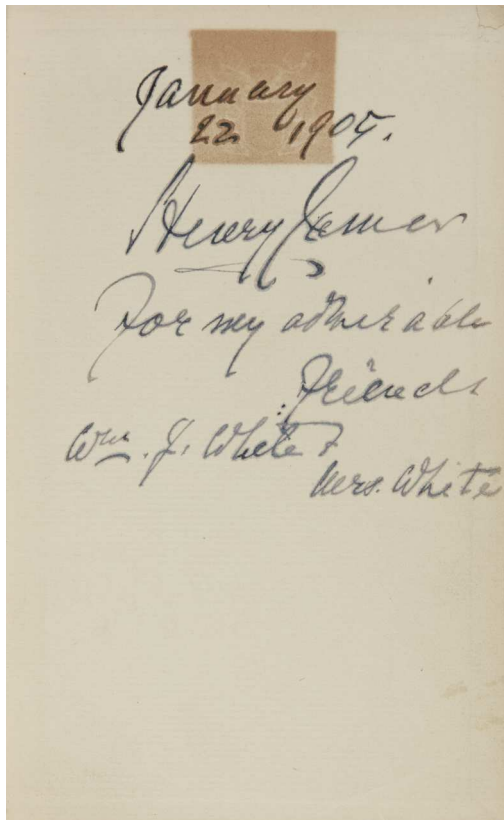 January
22 1905.
Henry James
For my admirable
Friends
Wm. J. White &
Mrs. White